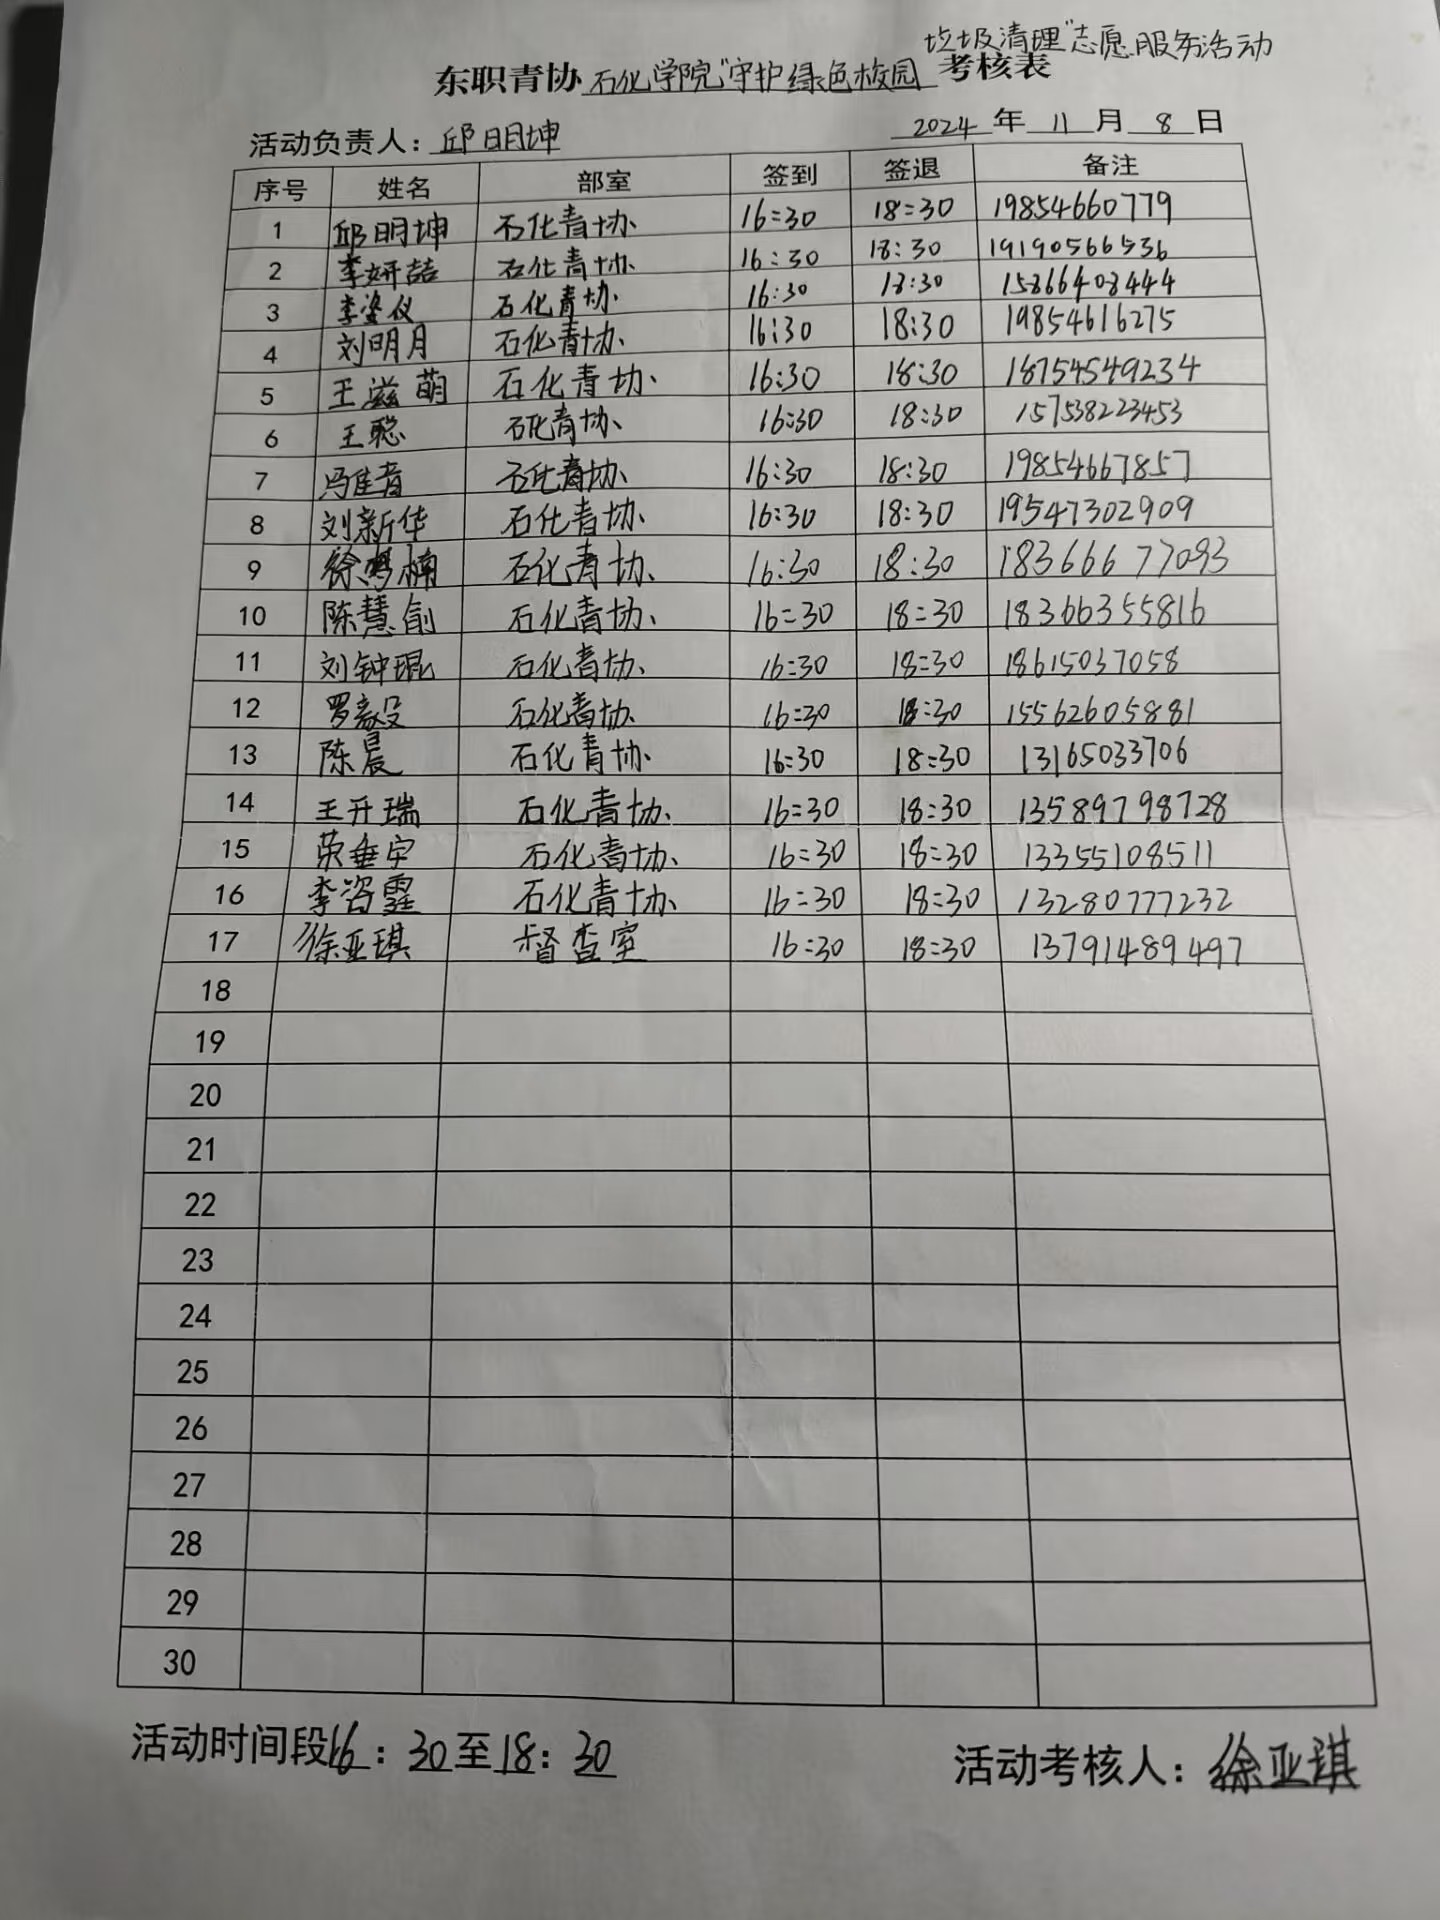 垃圾清理"志愿服务活动
东职青协石化学院"守护绿色校园考核表
活动负责人：邱明坤 2024年11月8日
序号 姓名 部室 签到 签退 备注
1 邱明坤 石化青协 16:30 18:30 19854660779
2 李妍喆 石化青协 16:30 18:30 19190566536
3 李姿仪 石化青协 16:30 18:30 15866408444
4 刘明月 石化青协 16:30 18:30 19854616275
5 王滋萌 石化青协 16:30 18:30 18754549234
6 王聪 石化青协 16:30 18:30 157538223453
7 冯佳音 石化青协 16:30 18:30 19854667857
8 刘新华 石化青协 16:30 18:30 19547302909
9 徐梦楠 石化青协 16:30 18:30 18366677093
10 陈慧俞 石化青协 16:30 18:30 18366355816
11 刘钟琨 石化青协 16:30 18:30 18615037058
12 罗毅 石化青协 16:30 18:30 15562605881
13 陈晨 石化青协 16:30 18:30 13165033706
14 王开瑞 石化青协 16:30 18:30 13589798728
15 荣垂宇 石化青协 16:30 18:30 13355108511
16 李咨霆 石化青协 16:30 18:30 13280777232
17 徐亚琪 督查室 16:30 18:30 13791489497
18
19
20
21
22
23
24
25
26
27
28
29
30
活动时间段16：30至18：30 活动考核人：徐亚琪